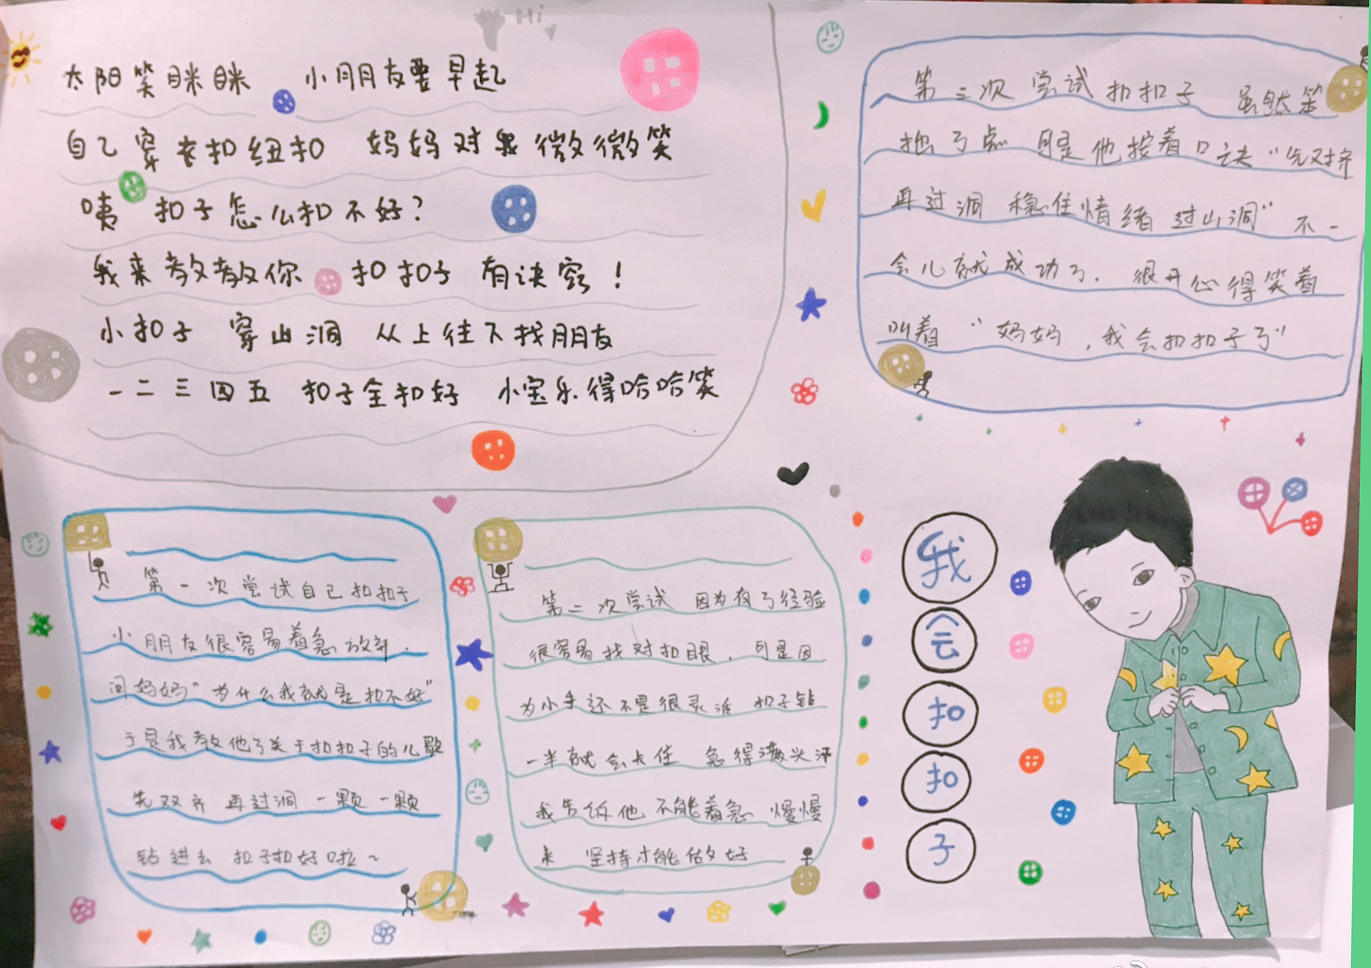 Hi
太阳笑眯眯 小朋友要早起
自己穿衣扣纽扣 妈妈对我微微笑
咦 扣子怎么扣不好?
我来教教你 扣扣子 有诀窍!
小扣子 穿山洞 从上往下找朋友
一二三四五 扣子全扣好 小宝乐得哈哈笑
第三次尝试扣扣子 虽然笨
拙了点 可是他按着口诀"先对齐
再过洞 稳住情绪 过山洞" 不一
会儿就成功了. 很开心得笑着
叫着 "妈妈,我会扣扣子了"
第一次尝试自己扣扣子
小朋友很容易着急放弃.
问妈妈"为什么我就是扣不好"
于是我教他了关于扣扣子的儿歌
先双齐 再过洞 一颗一颗
钻进去 扣子扣好啦~
第二次尝试 因为有了经验
很容易找对扣眼,可是因
为小手还不是很灵活 扣子钻
一半就会卡住 急得满头汗
我告诉他 不能着急 慢慢
来 坚持才能做好
我
会
扣
扣
子